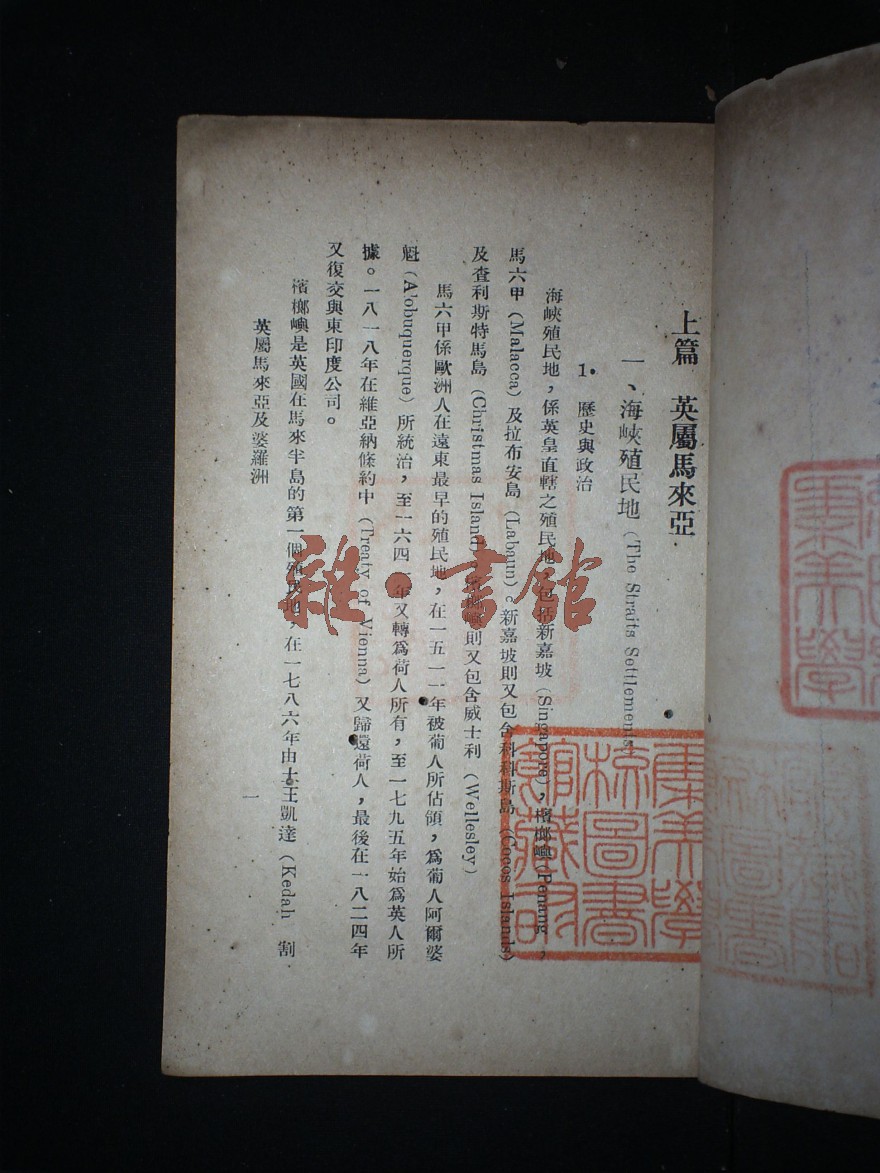 上篇 英屬馬來亞
一、海峽殖民地 (The Straits Settlements)
1. 歷史與政治
海峽殖民地，係英皇直轄之殖民地，包括新嘉坡 (Singapore)，檳榔嶼 (Penang)，
馬六甲 (Malacca) 及拉布安島 (Labaun)。新嘉坡則又包含科科斯島 (Cocos Islands)
及查利斯特馬島 (Christmas Island) 檳榔嶼則又包含威士利 (Wellesley)
馬六甲係歐洲人在遠東最早的殖民地，在一五一一年被葡人所佔領，為葡人阿爾婆
魁 (Alobuquerque) 所統治，至一六四一年又轉為荷人所有，至一七九五年始為英人所
據。一八一八年在維亞納條約中 (Treaty of Vienna) 又歸還荷人，最後在一八二四年
又復交與東印度公司。
檳榔嶼是英國在馬來半島的第一個殖民地，在一七八六年由土王凱達 (Kedah 割
英屬馬來亞及婆羅洲
一
雜·書館
集美學
校圖書
館藏